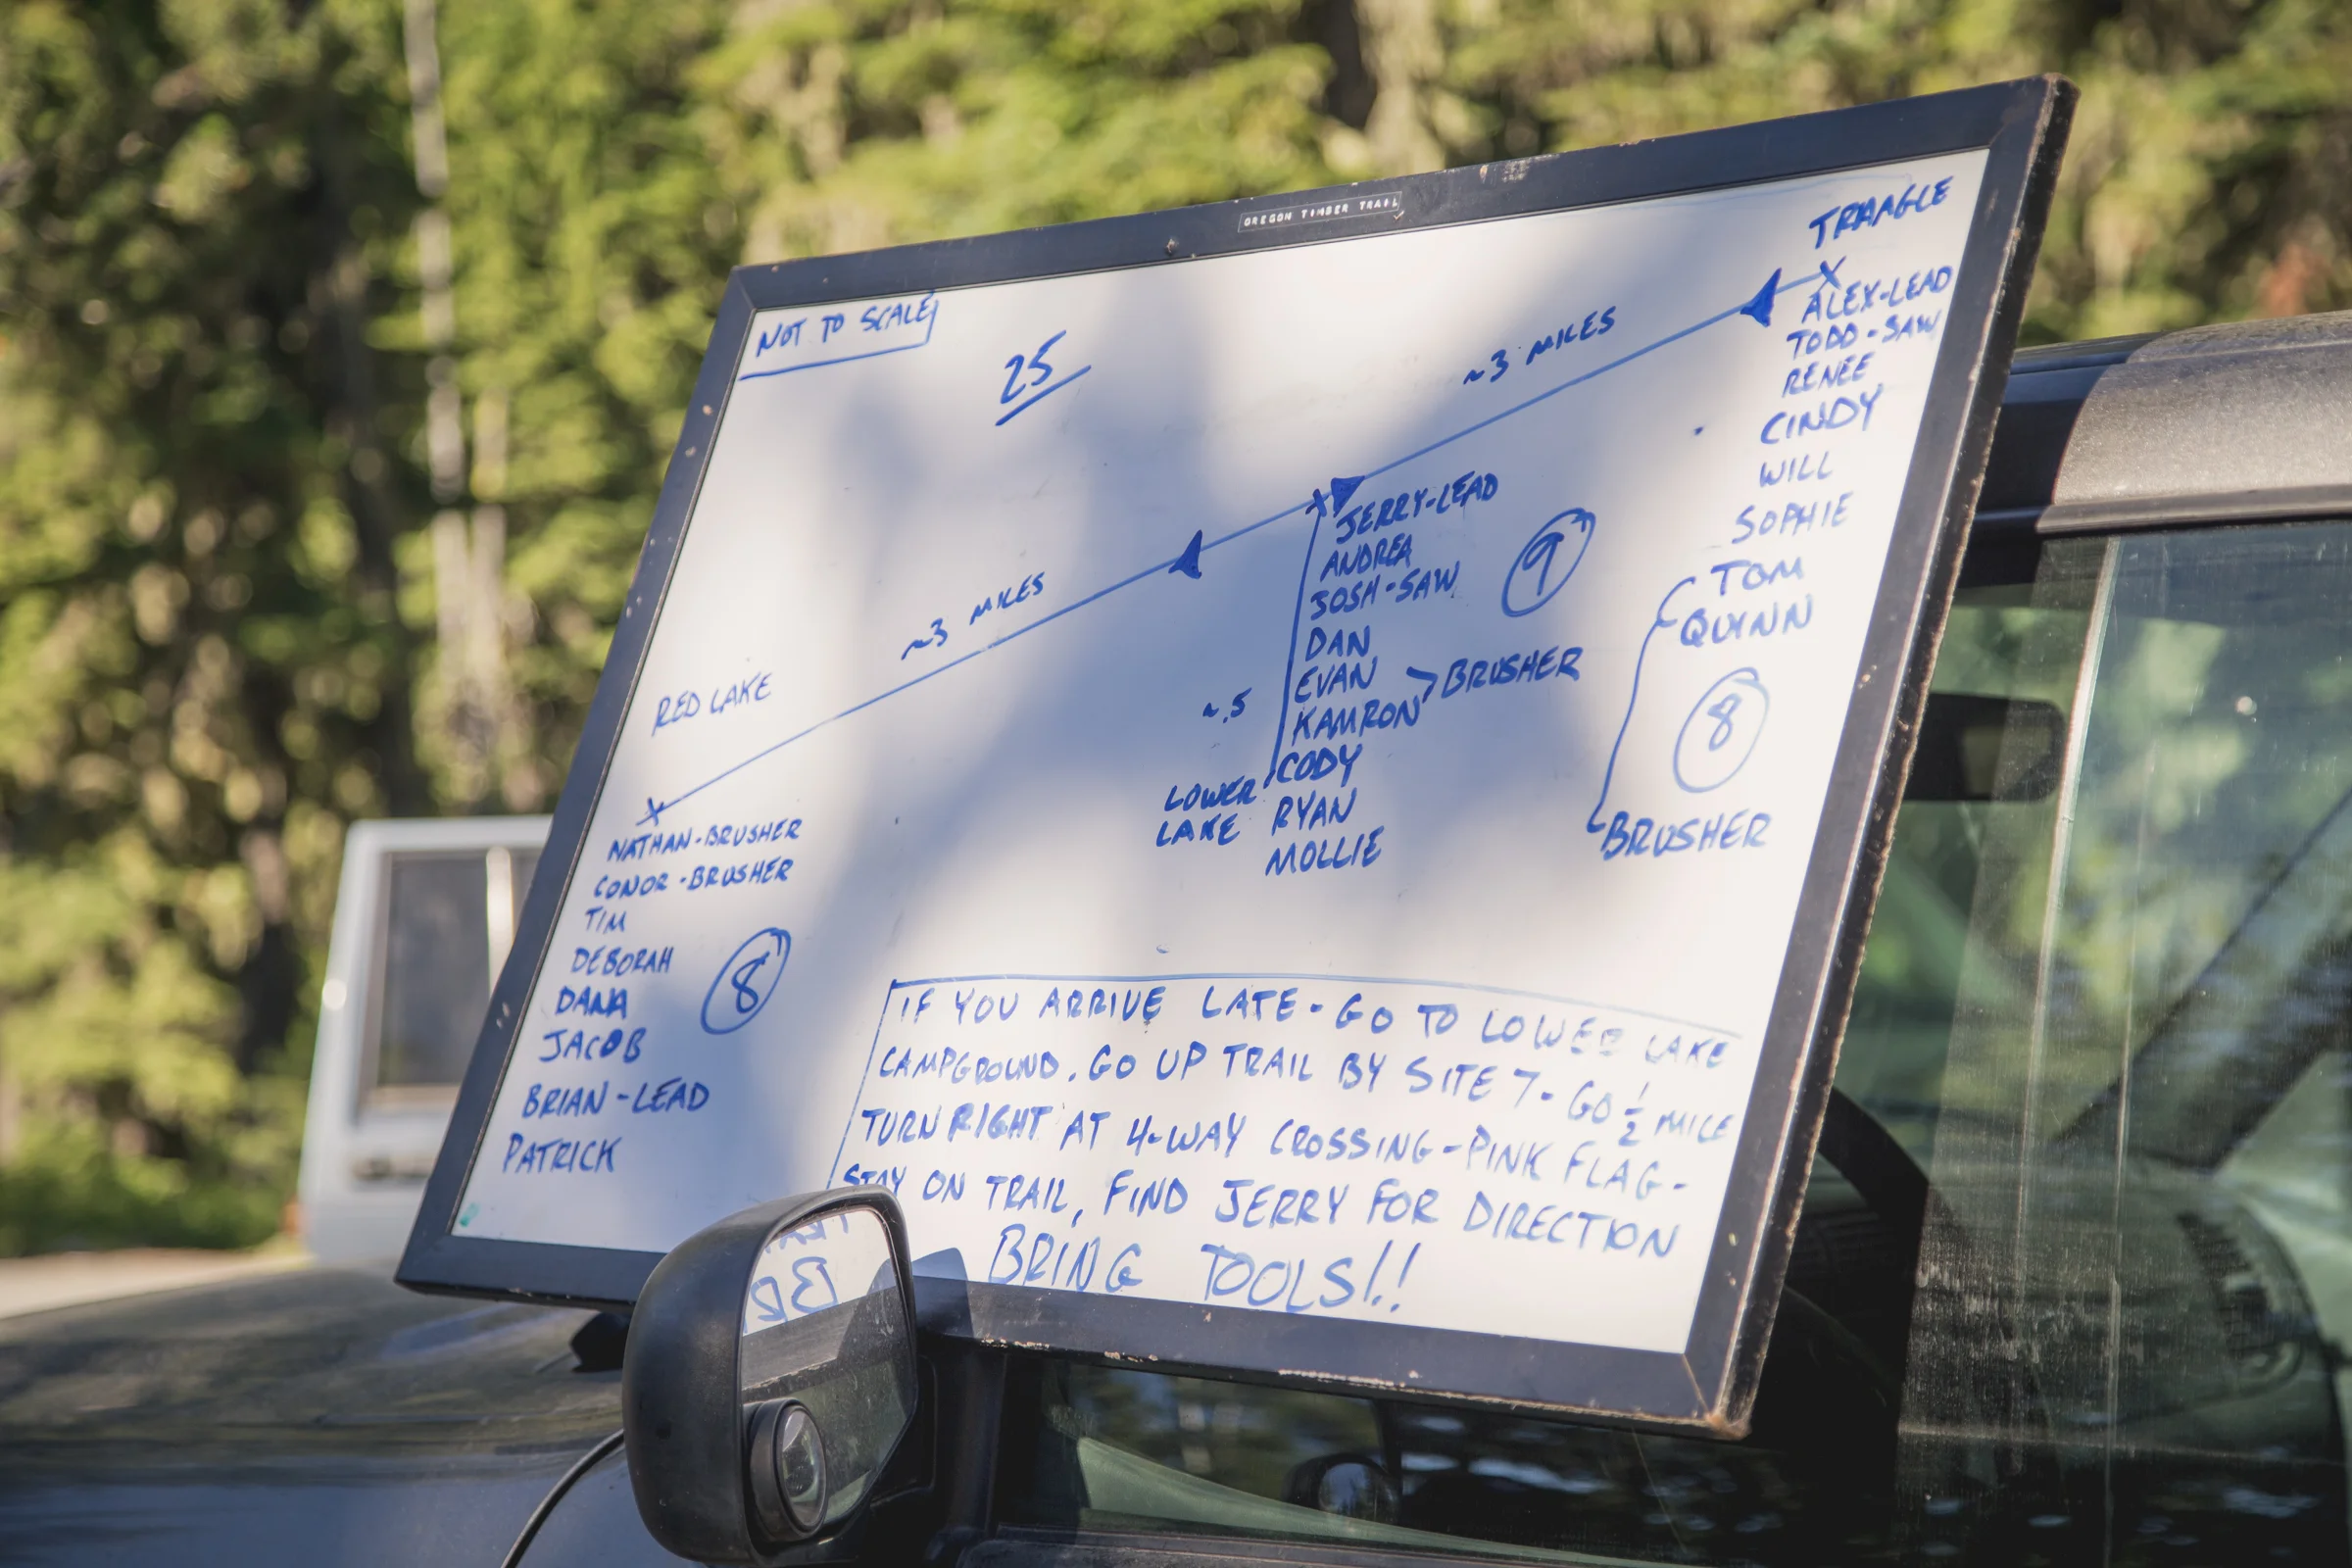 OREGON TIMBER TRAIL
NOT TO SCALE
25
~3 MILES
TRIANGLE
ALEX-LEAD
TODD-SAW
RENEE
CINDY
WILL
SOPHIE
TOM
QUINN
8
BRUSHER
JERRY-LEAD
ANDREA
JOSH-SAW
DAN
EVAN
KAMRON
BRUSHER
CODY
RYAN
MOLLIE
9
~.5
LOWER
LAKE
~3 MILES
RED LAKE
NATHAN-BRUSHER
CONOR-BRUSHER
TIM
DEBORAH
DANA
JACOB
BRIAN-LEAD
PATRICK
8
IF YOU ARRIVE LATE-GO TO LOWER LAKE
CAMPGROUND. GO UP TRAIL BY SITE 7-GO 1/2 MILE
TURN RIGHT AT 4-WAY CROSSING-PINK FLAG-
STAY ON TRAIL, FIND JERRY FOR DIRECTION
BRING TOOLS!!